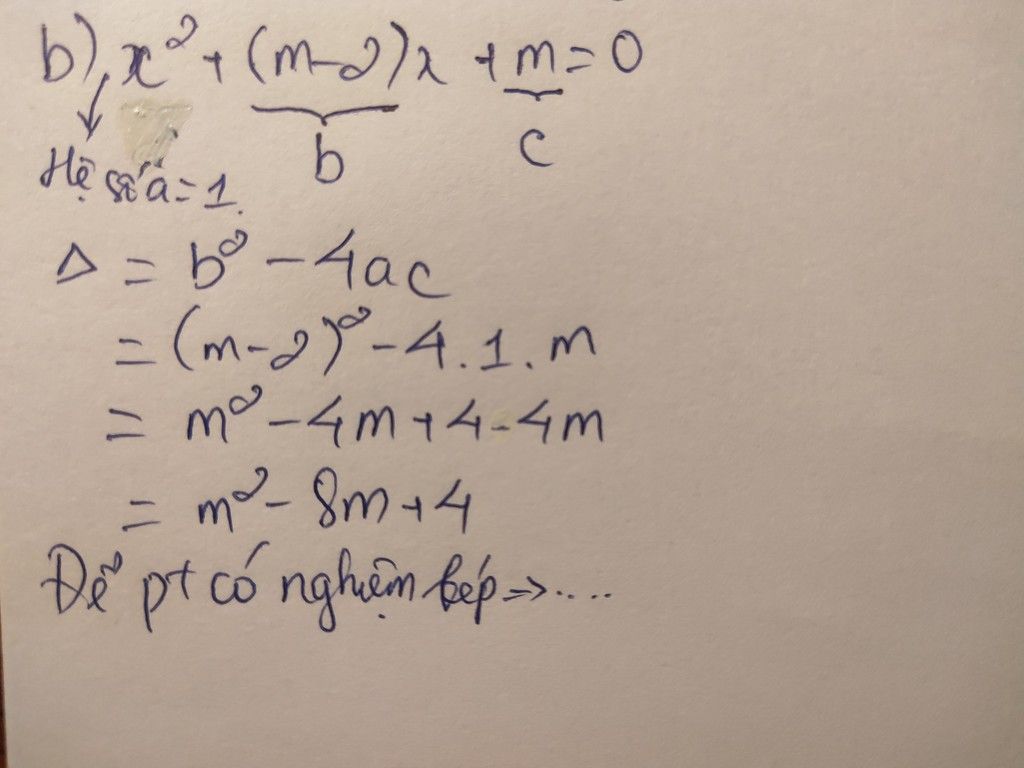 b) x² + (m-2)x + m = 0
b c
Hệ số a = 1.
Δ = b² - 4ac
= (m-2)² - 4.1.m
= m² - 4m + 4 - 4m
= m² - 8m + 4
Để pt có nghiệm kép => ....